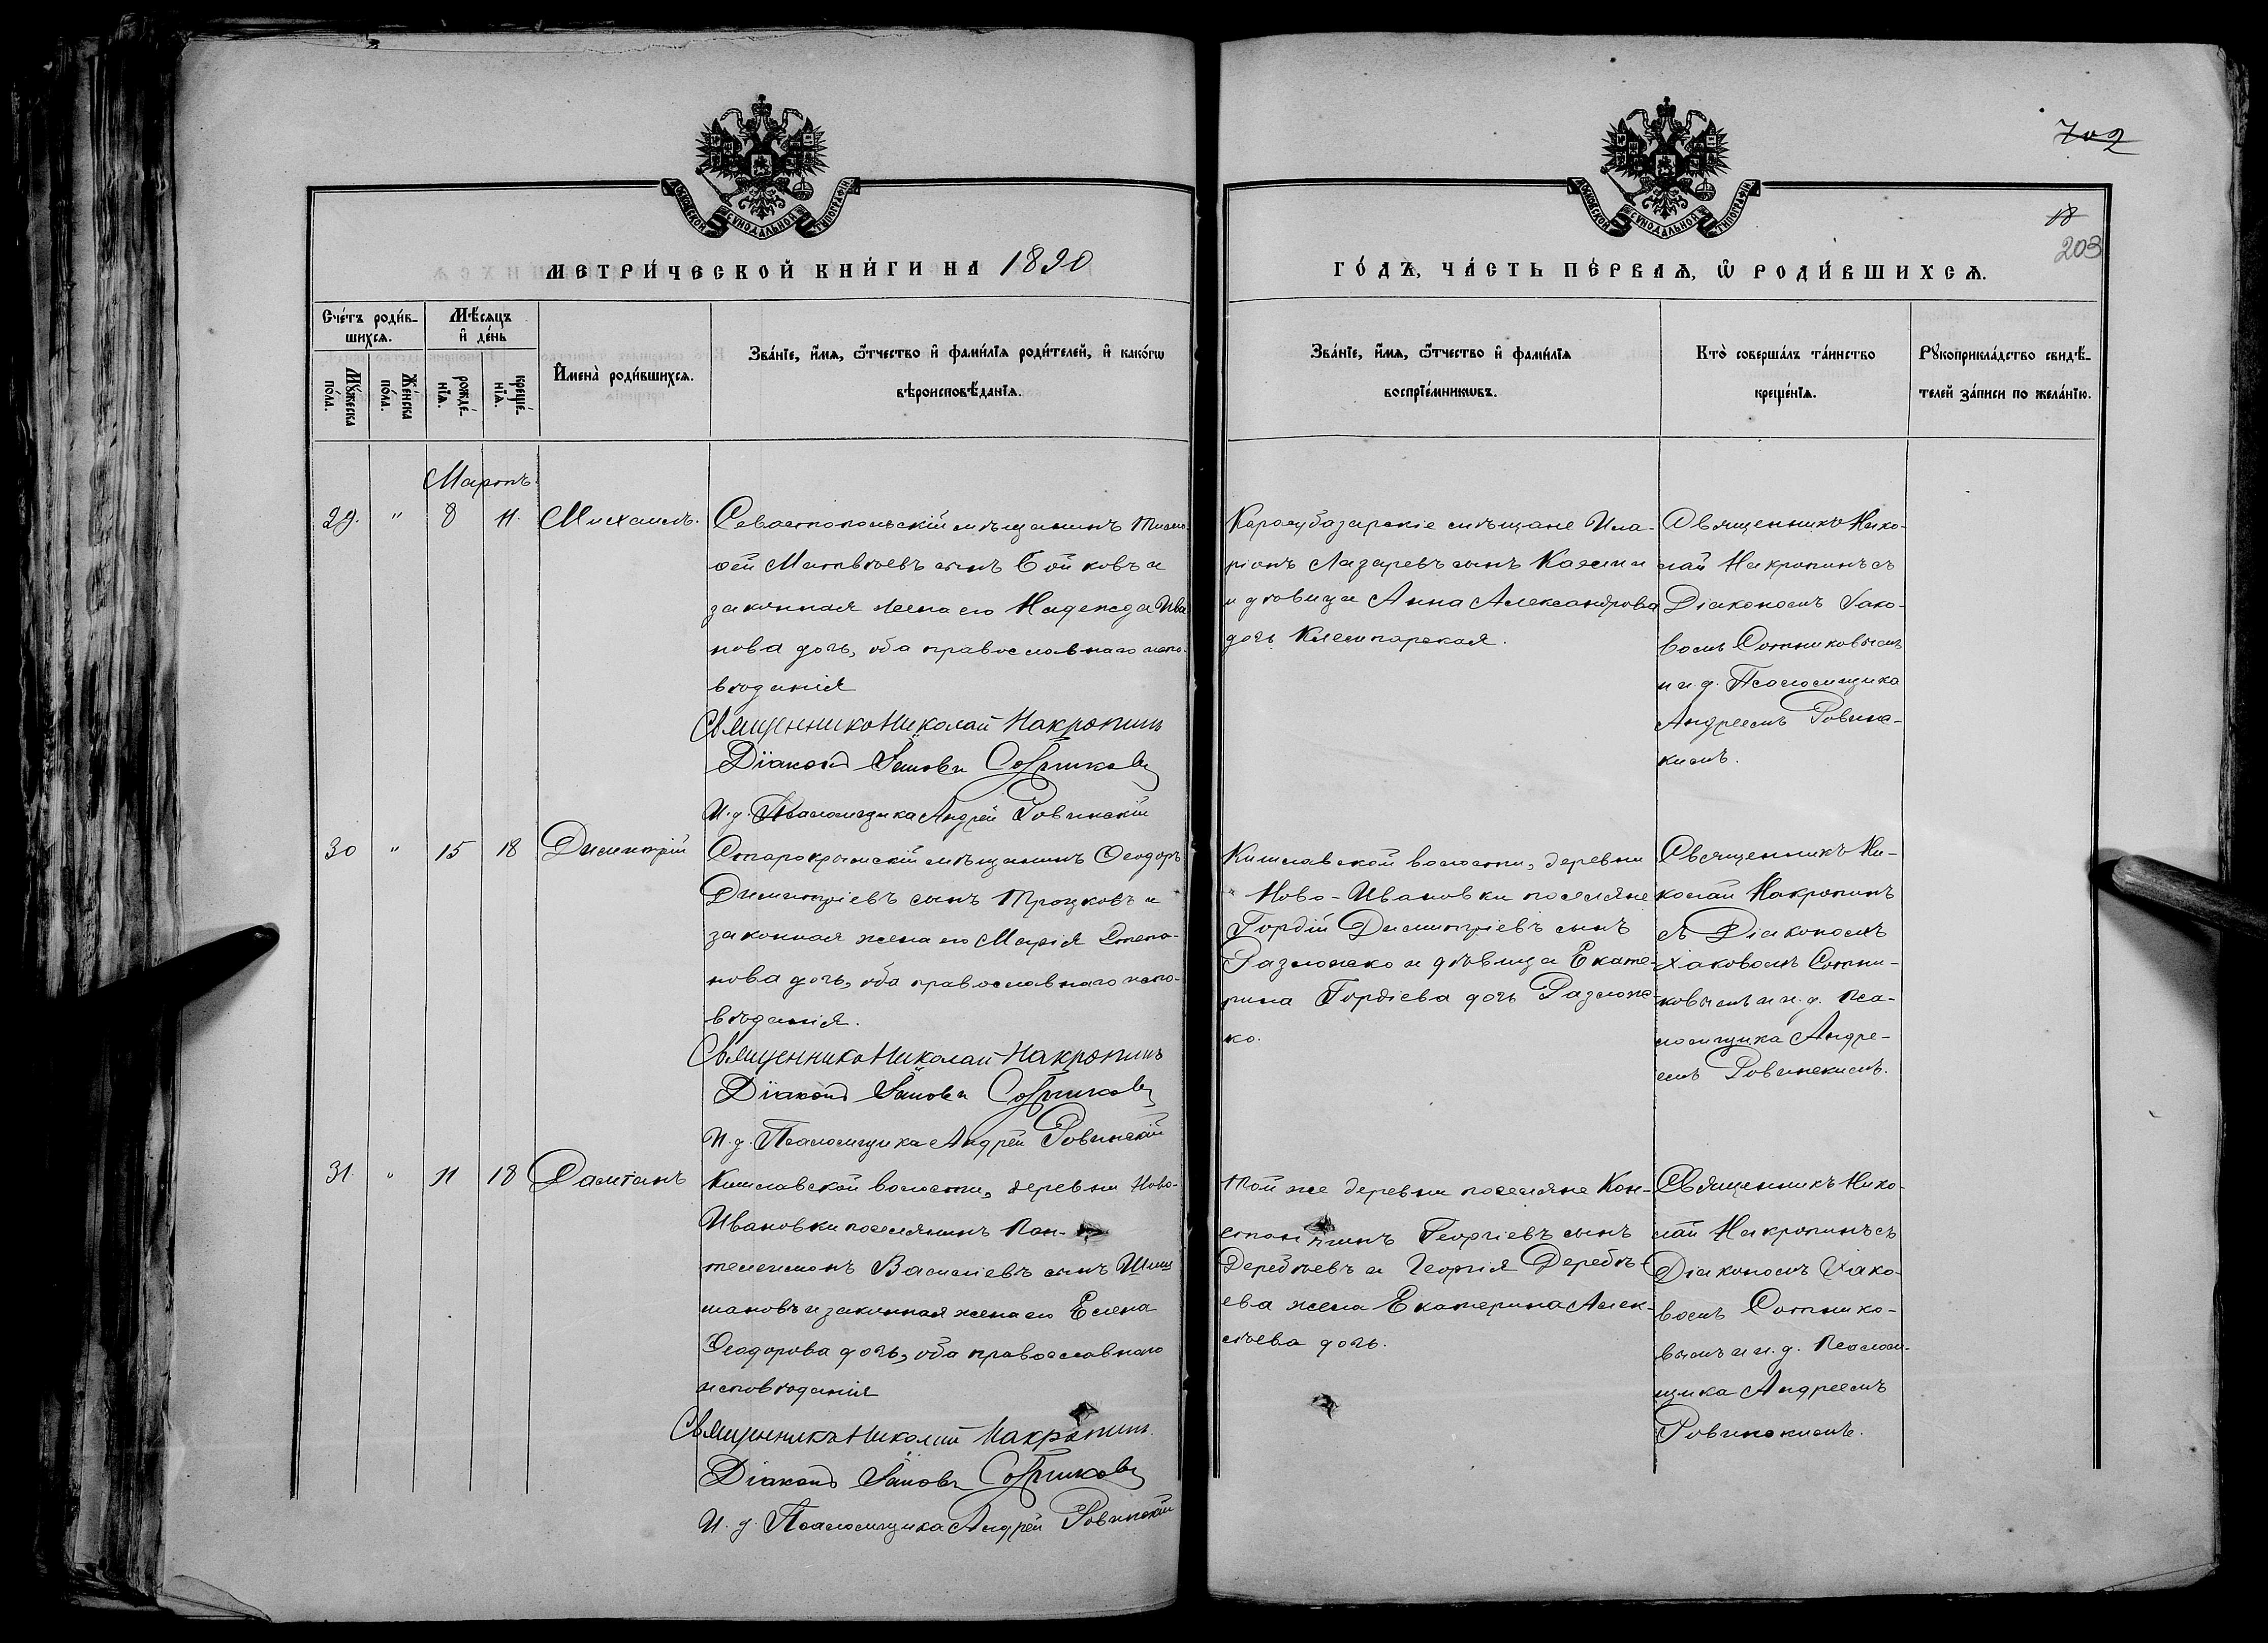 702
18
203
МОСКОВСКОЙ СѴНОДАЛЬНОЙ ТИПОГРАФІИ
МЕТРИ́ЧЕСКОЙ КНИ́ГИ НА 1890
МОСКОВСКОЙ СѴНОДАЛЬНОЙ ТИПОГРАФІИ
ГО́ДЪ, ЧА́СТЬ ПЕ́РВАѦ, Ѡ РОДИ́ВШИХСѦ.
Сче́тъ роди́в-
шихсѧ.
Му́жеска
по́ла.
Же́нска
по́ла.
Мѣ́сѧцъ
и де́нь
рожде́-
нїѧ.
креще́-
нїѧ.
Имена̀ роди́вшихсѧ.
Зва́нїе, и́мѧ, ѻ́тчество и фами́лїѧ роди́телей, и како́гѡ
вѣроисповѣ́данїѧ.
Зва́нїе, и́мѧ, ѻ́тчество и фами́лїѧ
воспрїе́мникѡвъ.
Кто̀ соверша́лъ та́инство
креще́нїѧ.
Рꙋкоприкла́дство свидѣ́-
телей за́писи по жела́нїю.
Мартъ
29. " 8 11. Михаилъ.
Севастопольскій мѣщанинъ Тимо-
ѳей Матвѣевъ сынъ Бойковъ и
законная жена его Надежда Ива
нова дочь, оба православнаго испо-
вѣданія
Священникъ Николай Макропинъ
Діаконъ Іаковъ Сотниковъ
И. д. Псаломщика Андрей Ровинскій
Карасубазарскіе мѣщане Ила-
ріонъ Лазаревъ сынъ
и дѣвица Анна Александрова
дочь
Священникъ Нико-
лай Макропинъ съ
Діакономъ Іако-
вомъ Сотниковымъ
и и. д. Псаломщика
Андреемъ Ровинс-
кимъ.
30 " 15 18 Димитрій
Старокрымскій мѣщанинъ Ѳеодоръ
Димитріевъ сынъ Троцковъ и
законная жена его Марія Степа-
нова дочь, оба православнаго испо-
вѣданія.
Священникъ Николай Макропинъ
Діаконъ Іаковъ Сотниковъ
И. д. Псаломщика Андрей Ровинскій
Кишлавской волости, деревни
Ново-Ивановки поселяне
Гордій Димитріевъ сынъ
Разложко и дѣвица Екате-
рина Гордіева дочь Разлож-
ко.
Священникъ Ни-
колай Макропинъ
съ Діакономъ
Іаковомъ Сотни-
ковымъ и и. д. Пса-
ломщика Андре-
емъ Ровинскимъ.
31. " 11 18 Даміанъ
Кишлавской волости, деревни Ново-
Ивановки поселянинъ Пан-
телеимонъ Василіевъ сынъ Шиш
мановъ и законная жена его Елена
Ѳеодорова дочь, оба православнаго
исповѣданія
Священникъ Николай Макропинъ.
Діаконъ Іаковъ Сотниковъ
И. д. Псаломщика Андрей Ровинскій
Той же деревни поселяне Кон-
стантинъ Георгіевъ сынъ
Деребѣевъ и Георгія Деребѣ-
ева жена Екатерина Алек-
сѣева дочь.
Священникъ Нико-
лай Макропинъ съ
Діакономъ Іако-
вомъ Сотнико-
вымъ и и. д. Псалом-
щика Андреемъ
Ровинскимъ.